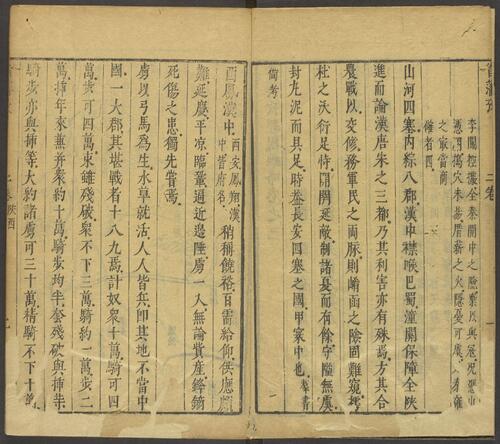 李闖控據全秦關中之險棄以與冦况惡山
憑𭛁搗穴未葢厝薪之火隱憂可慮
之最當商
確者四
山河四塞内綜八郡漢中襟喉巴蜀潼關保障全陜
進而論漢唐朱之三都乃其利害亦有殊焉方其合
農戰以交修務軍民之兩脉則崤函之險固難窺
杜之沃衍足恃開延敵制諸戛而有餘守隘無虞
封九泥而具足時葢長安四塞之國甲寨中也
備考
一
酉鳳漢中酉安鳳翔漢中皆府名稍稱饒裕百需給仰供應
難延慶平凉臨鞏逼近邊陲虜一人無論貲産鋒鏑
死傷之患獨先嘗焉
虜以弓馬為生水草就活人人皆兵即其地不當中
國一大郡其堪戰者十八九焉計奴衆十萬騎可四
萬步可四萬東雖殘破衆不下三萬騎約一萬步二
萬挿年來無并衆約十萬騎步均半奎殘破與挿等
騎步亦與挿等大約諸虜可三十萬精騎不下十萬
二卷
陜西